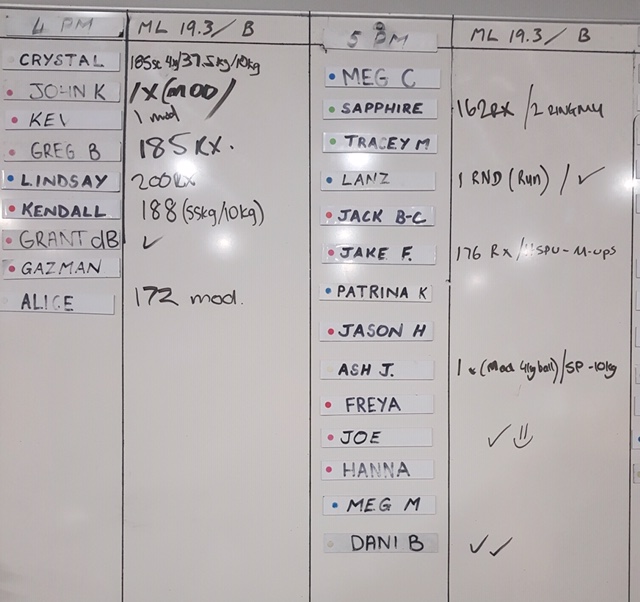 4 PM ML 19.3 / B
CRYSTAL 185sc 4kg/37.5kg/10kg
JOHN K 1 X (MOD)
KEV 1 mod
GREG B 185 RX.
LINDSAY 200RX
KENDALL 188 (55kg/10kg)
GRANT dB ✓
GAZMAN
ALICE 172 mod.
5 PM ML 19.3 / B
MEG C
SAPPHIRE 162RX / 2 RINGMU
TRACEY M
LANZ 1 RND (Run) / ✓
JACK B-C
JAKE F. 176 Rx / HSPU - M-UPS
PATRINA K
JASON H
ASH J. 1 x (Mod 4kg ball) / SP -10kg
FREYA
JOE ✓
HANNA
MEG M
DANI B ✓✓